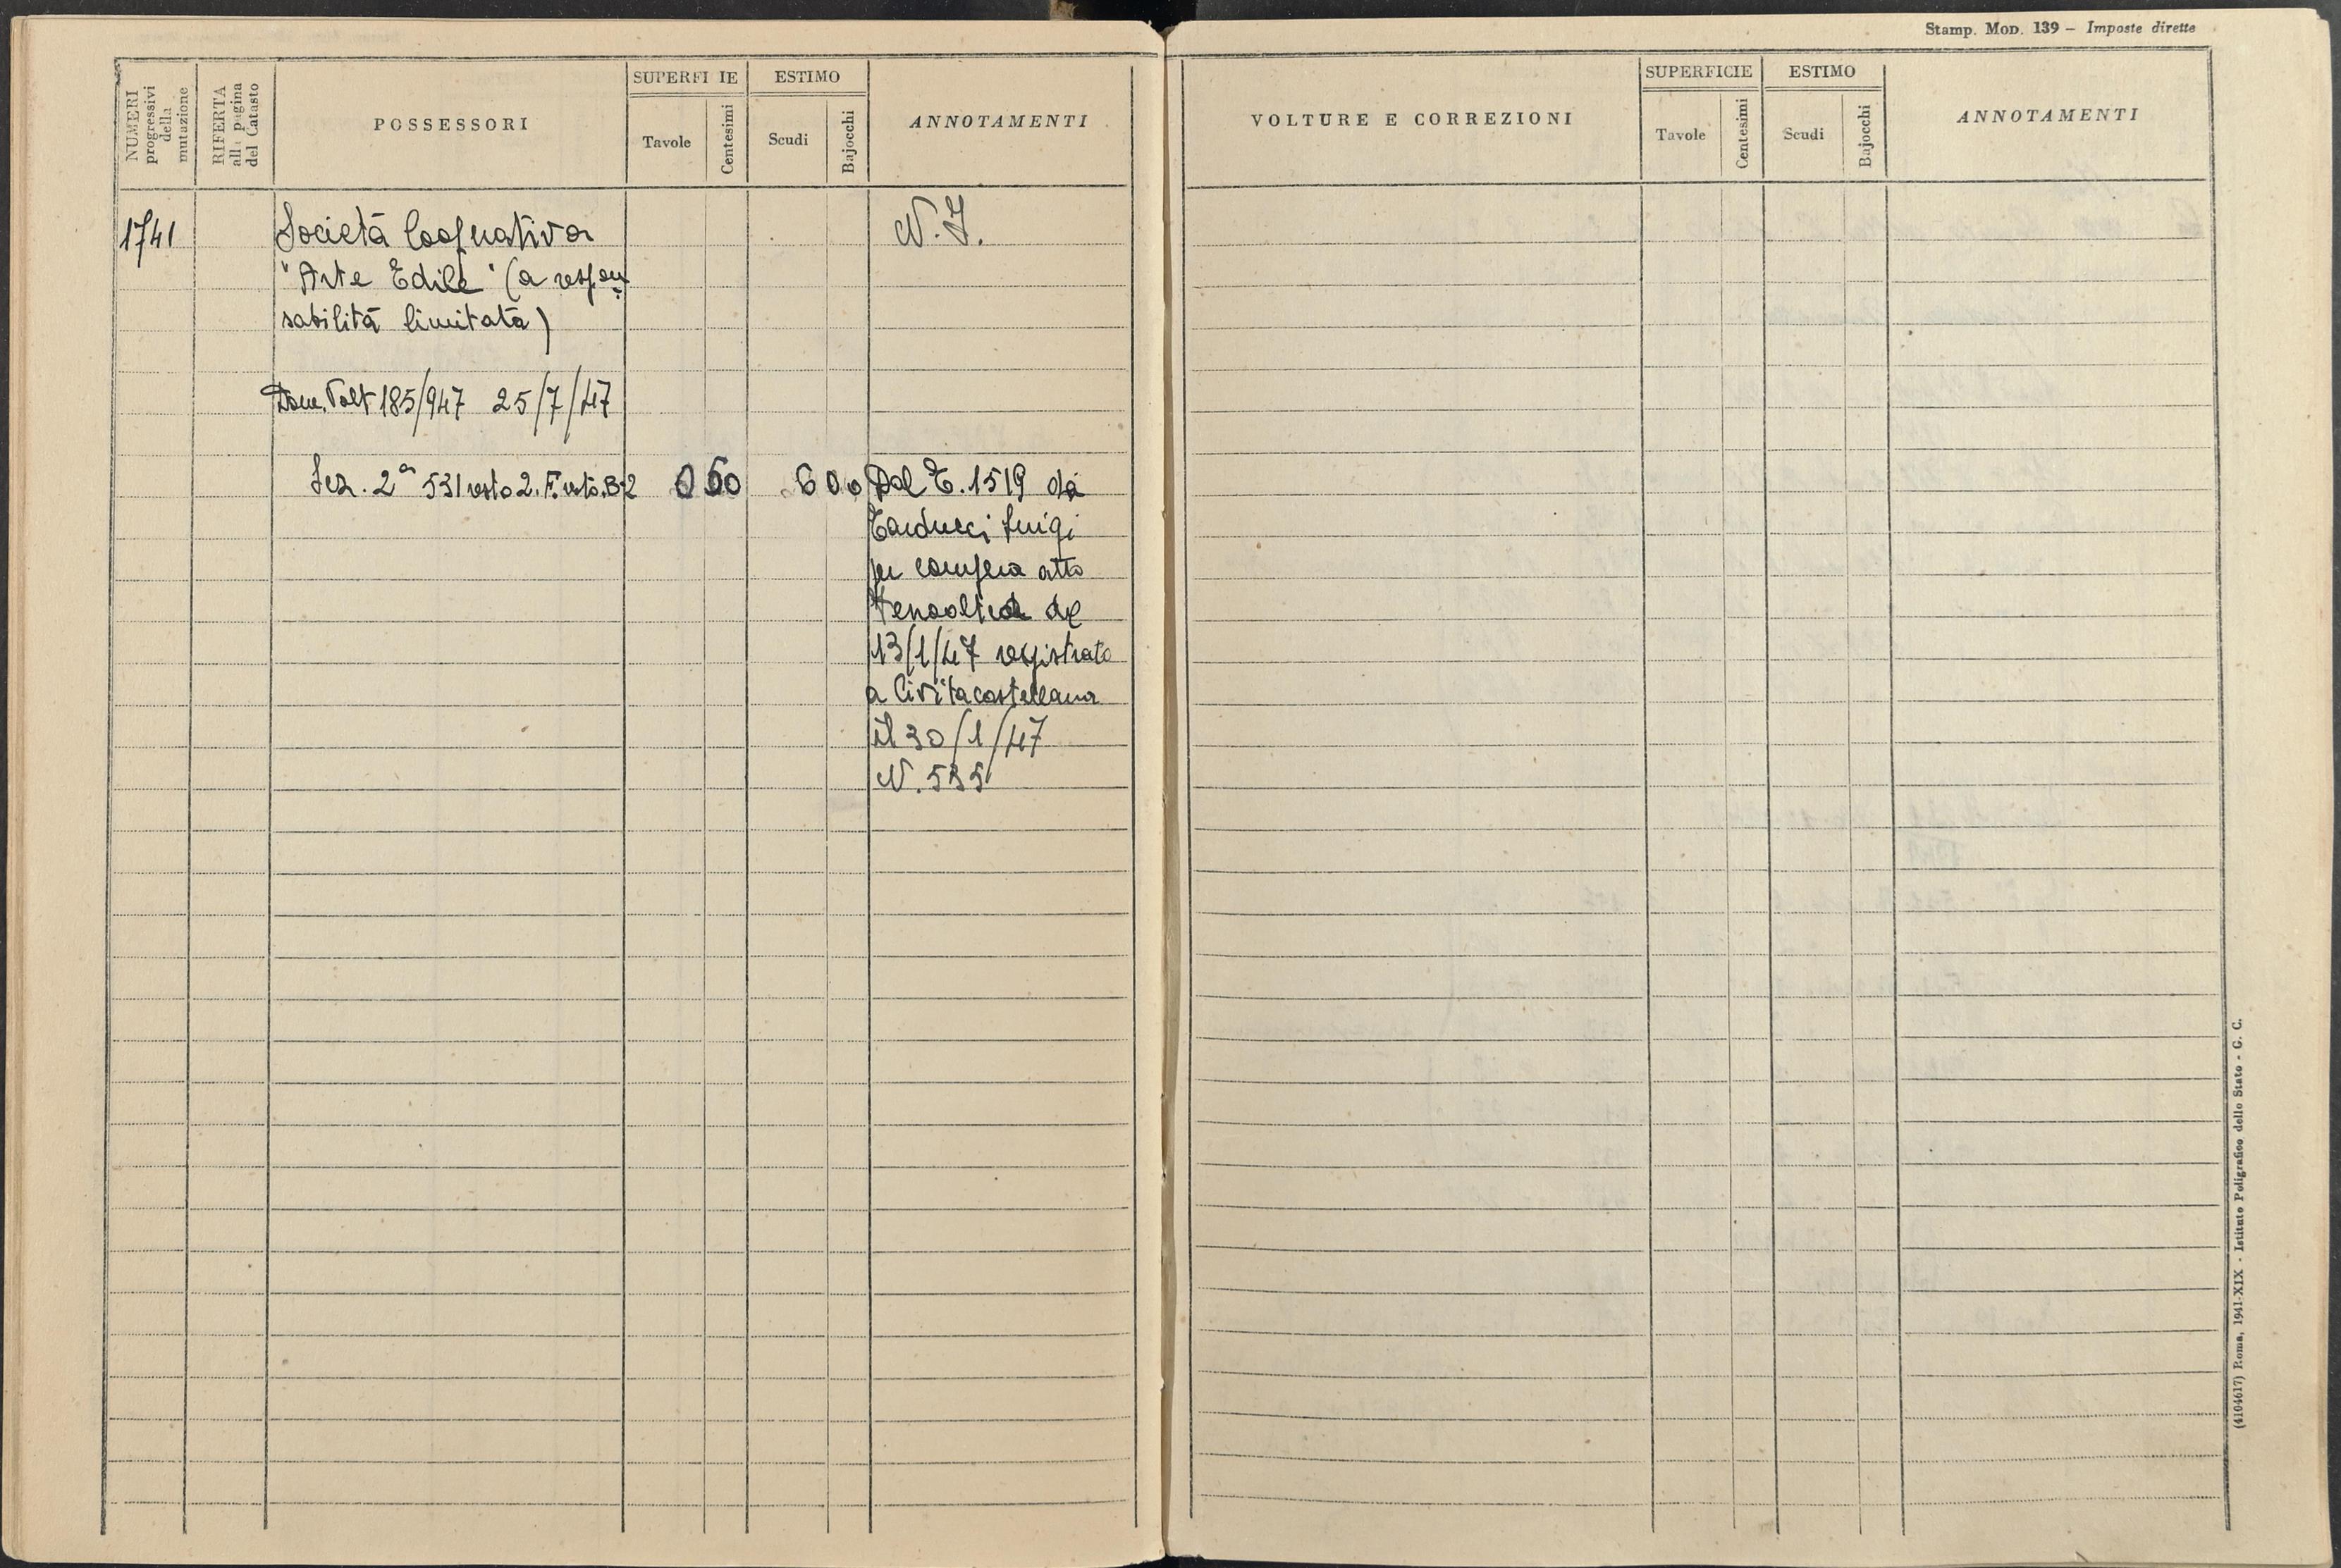 NUMERI
progressivi
della
mutazione
RIFERTA
alla pagina
del Catasto
POSSESSORI
SUPERFI IE
Tavole
Centesimi
ESTIMO
Scudi
Bajocchi
ANNOTAMENTI
1741
Società Cooperativa
"Arte Edile" (a respon
sabilità limitata)
N. I.
Dom. Volt 185/947 25/7/47
Sez. 2a 531 resto 2. F. resto. B-2
0 50
6 00
Dal T. 1519 da
Carducci Luigi
per compera atto
del
13/1/47 registrato
a Civitacastellana
il 30/1/47
N. 535
Stamp. Mod. 139 – Imposte dirette
VOLTURE E CORREZIONI
SUPERFICIE
Tavole
Centesimi
ESTIMO
Scudi
Bajocchi
ANNOTAMENTI
(4104617) Roma, 1941-XIX - Istituto Poligrafico dello Stato - G. C.